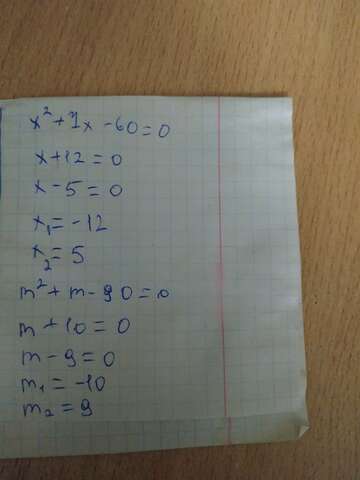 x² + 7x - 60 = 0
x + 12 = 0
x - 5 = 0
x₁ = -12
x₂ = 5
m² + m - 90 = 0
m + 10 = 0
m - 9 = 0
m₁ = -10
m₂ = 9